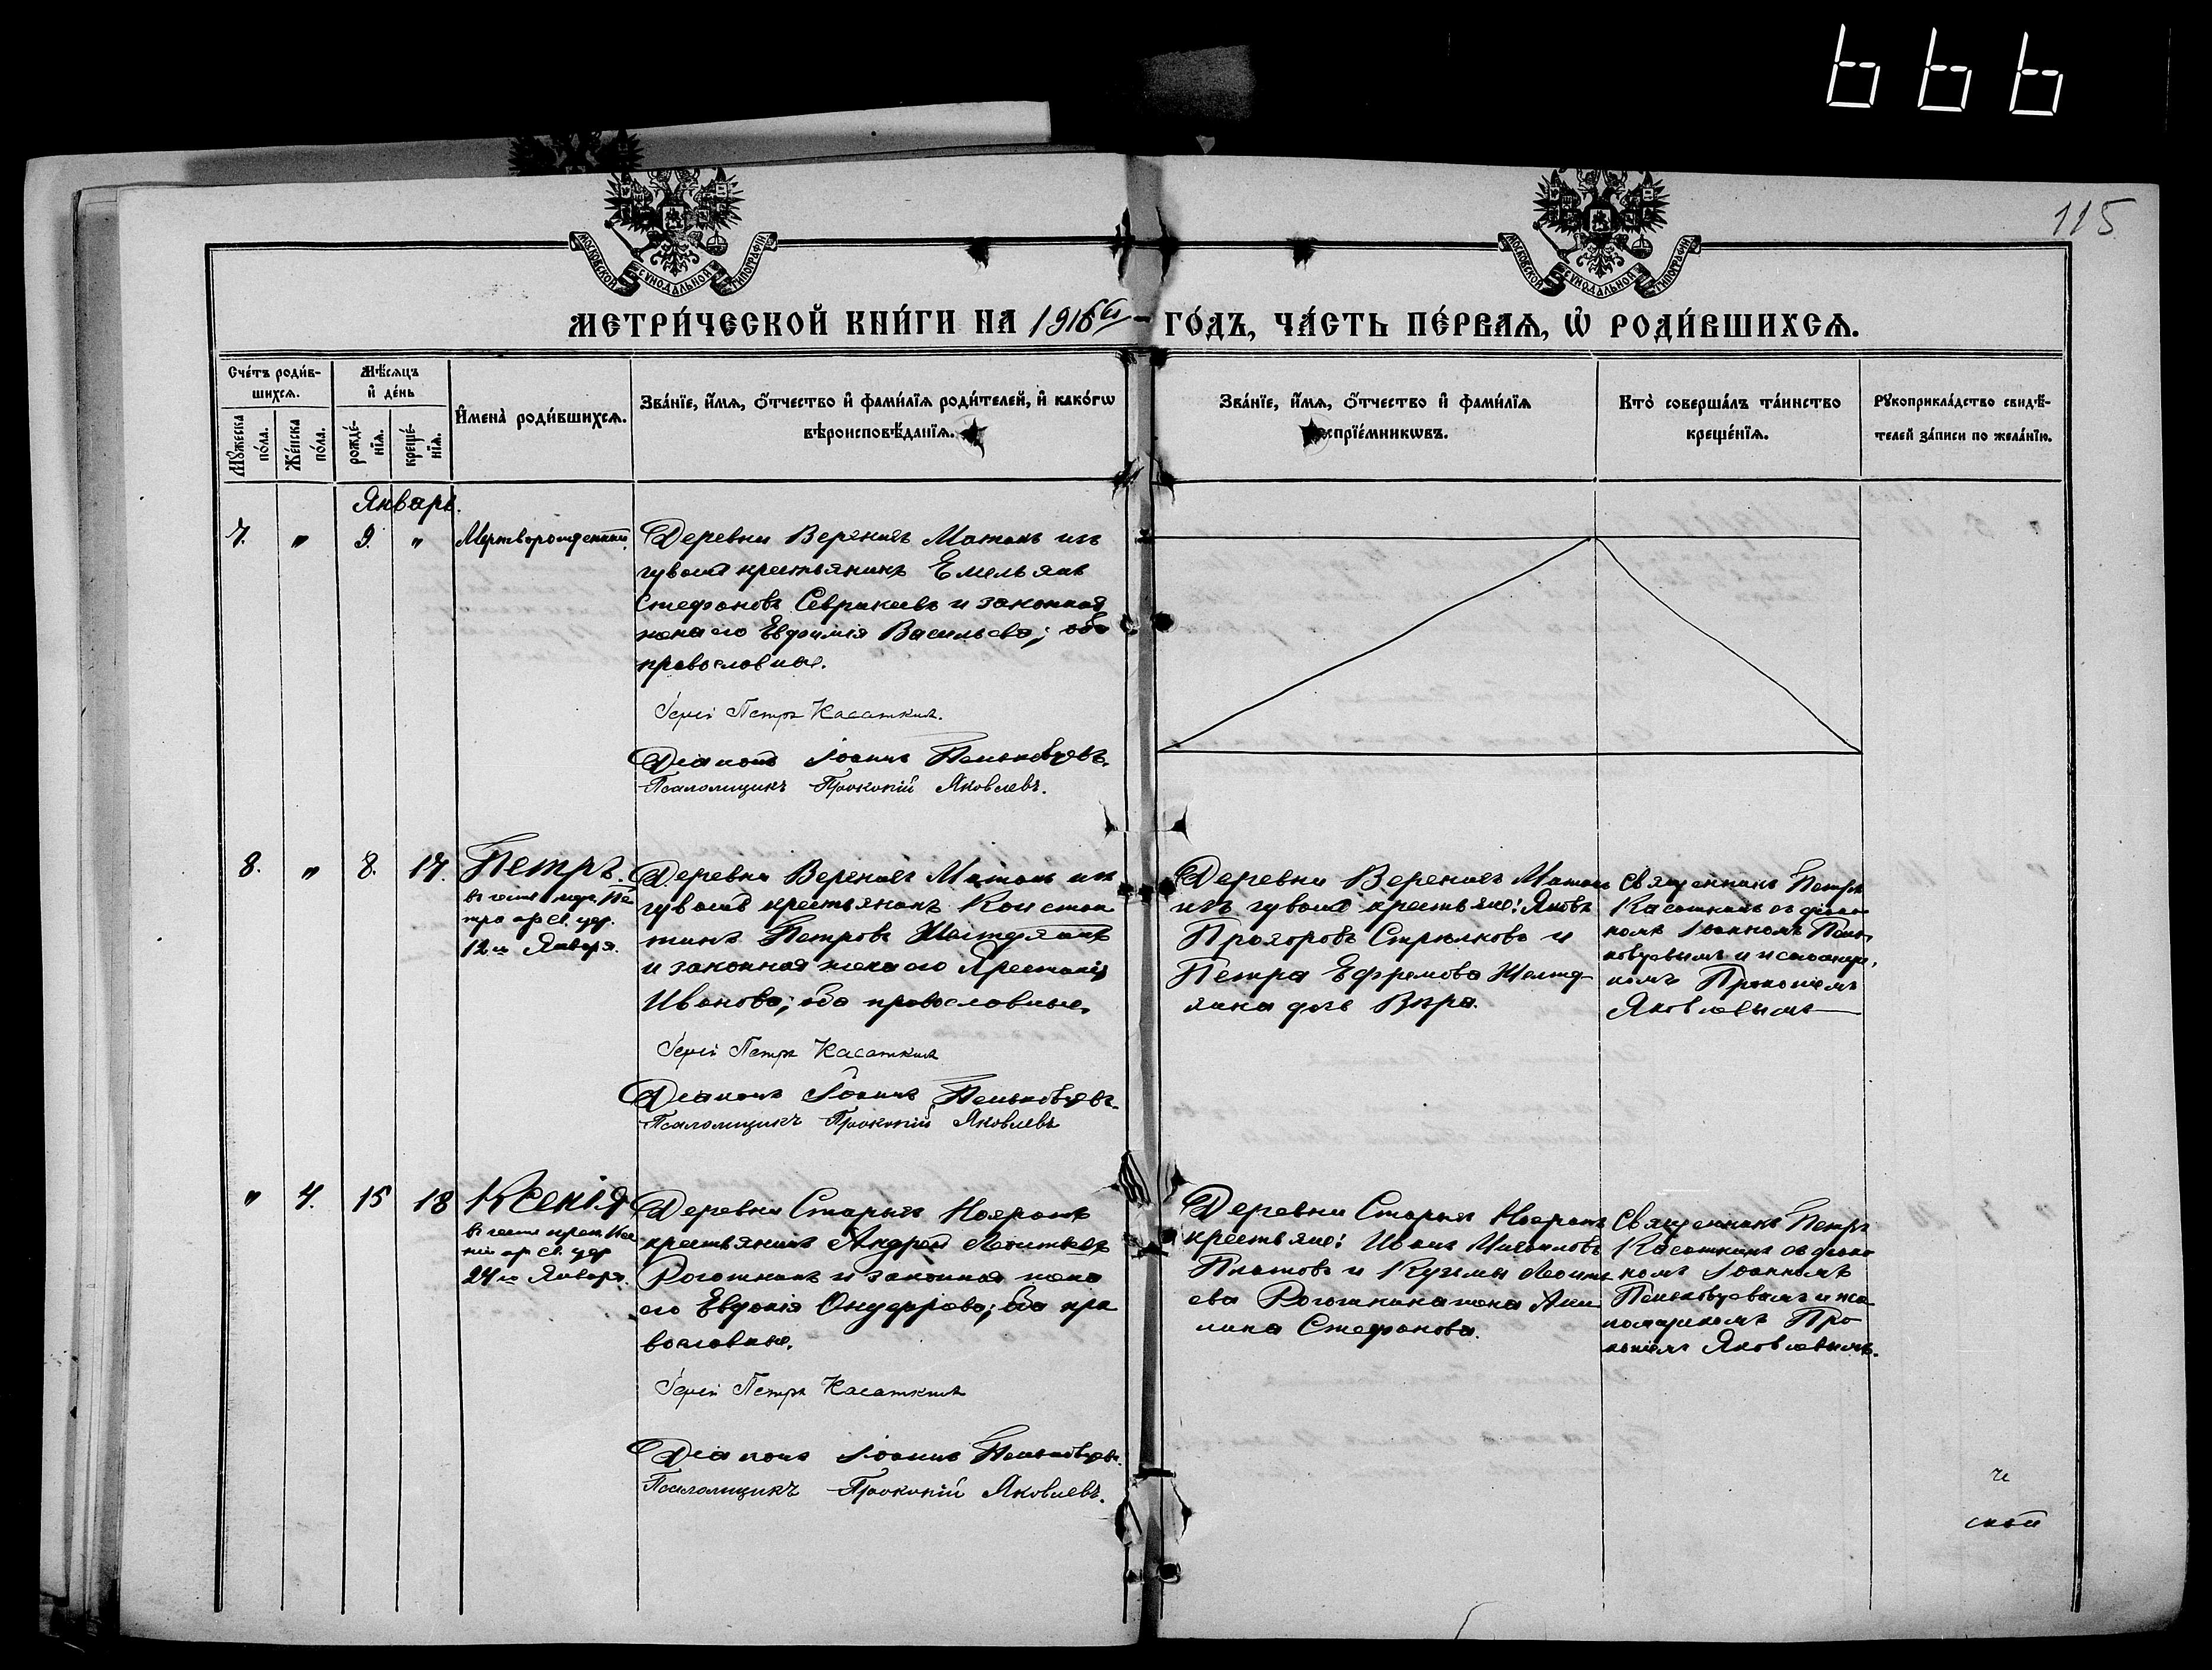 666
115
МОСКОВСКОЙ СѴНОДАЛЬНОЙ ТИПОГРАФІИ
МОСКОВСКОЙ СѴНОДАЛЬНОЙ ТИПОГРАФІИ
МЕТРИ́ЧЕСКОЙ КНИ́ГИ НА 1916й - ГО́ДЪ, ЧА́СТЬ ПЕ́РВАѦ, Ѡ҆ РОДИ́ВШИХСѦ.
Сче́тъ роди́в-
шихсѧ.
Мѣ́сѧцъ
и҆ де́нь
Мꙋ́жеска
по́ла.
Же́нска
по́ла.
рожде́-
нїѧ.
креще́-
нїѧ.
И҆мена̀ роди́вшихсѧ.
Зва́нїе, и҆́мѧ, ѻ҆́тчество и҆ фами́лїѧ роди́телей, и҆ како́гѡ
вѣроисповѣ́данїѧ.
Зва́нїе, и҆́мѧ, ѻ҆́тчество и҆ фами́лїѧ
спрїе́мникѡвъ.
Кто̀ соверша́лъ та́инство
креще́нїѧ.
Рꙋкоприкла́дство свидѣ́-
телей за́писи по жела́нїю.
Январь.
7. " 9. " Мертворожденный.
Деревни Верхнихъ Матакъ изъ
чувашъ крестьянинъ Емельянъ
Стефановъ Геврикеевъ и законная
жена его Евфимія Васильева; оба
православные.
Іерей Петръ Касаткинъ.
Діаконъ Іоаннъ Пеньковцевъ.
Псаломщикъ Прокопій Яковлевъ.
8. " 8. 17. Петръ.
въ честь муч. Пе
тра пр. св. цер.
12го Января.
Деревни Верхнихъ Матакъ изъ
чувашъ крестьянинъ Констан
тинъ Петровъ
и законная жена его
Иванова; оба православные.
Іерей Петръ Касаткинъ
Діаконъ Іоаннъ Пеньковцевъ.
Псаломщикъ Прокопій Яковлевъ
Деревни Верхнихъ Матакъ
изъ чувашъ крестьяне: Яковъ
Прохоровъ Стрѣлковъ и
Петра Ефремова
дочь Вѣра.
Священникъ Петръ
Касаткинъ съ діако
номъ Іоанномъ Пень
ковцевымъ и
Прокопіемъ
Яковлевымъ
" 4. 15 18 Ксенія
въ честь преп. Ксе
ніи пр. св. цер
24го Января.
Деревни Старыхъ
крестьянинъ Андрей Леонтьевъ
Рогожкинъ и законная жена
его Евдокія Онуфріева; оба пра
вославные.
Іерей Петръ Касаткинъ
Діаконъ Іоаннъ Пеньковцевъ.
Псаломщикъ Прокопій Яковлевъ.
Деревни Старыхъ
крестьяне: Иванъ Михайловъ
Платовъ и Кузьмы Леонть
ева Рогожкина жена Аки
лина Стефанова.
Священникъ Петръ
Касаткинъ съ діако
номъ Іоанномъ
Пеньковцевымъ и
Про
копіемъ Яковлевымъ.
и
ской